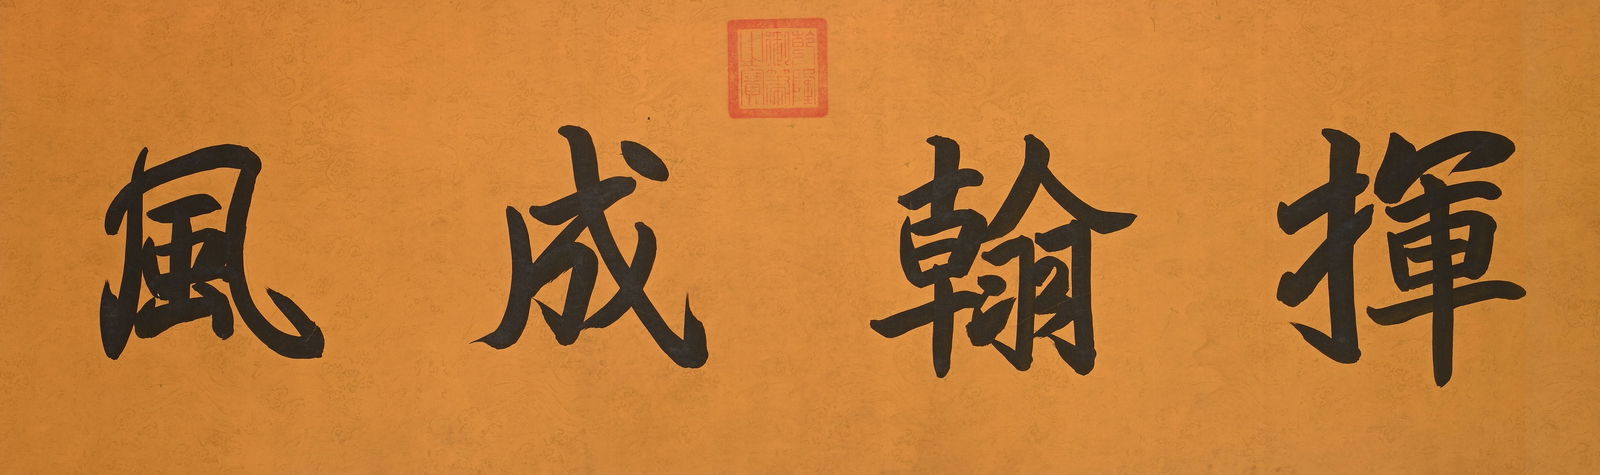 揮翰成風
乾隆御筆之寶